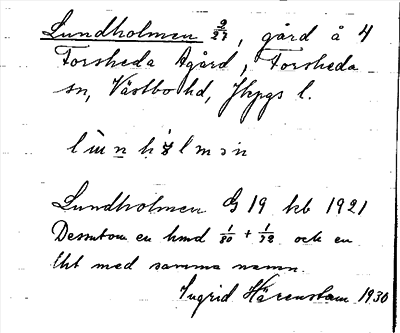 Lundholmen 9/27, gård å 4
Forsheda Agård, Forsheda
sn, Västbo hd, Jkpgs l.
Lundholmen G 19 kb 1921
Dessutom en hmd 1/80 + 1/92 och en
lht med samma namn.
Ingrid Härenstam 1930